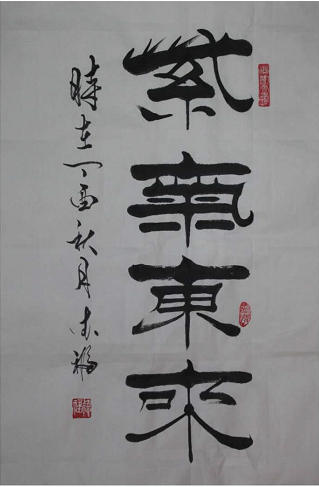 紫氣東來
時在丁酉秋月